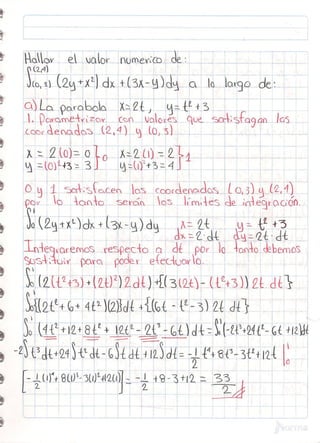 Hallar el valor numerico de:
∫(0,3)^(2,4) (2y+x²) dx +(3x-y)dy a lo largo de:
a) La parabola X=2t, y=t²+3
1. Parametrizar con valores que satisfagan las
coordenadas (2,4) y (0,3)
X = 2(0)= 0 } 0 X=2(1) = 2 } 1
y =(0)²+3= 3 y=(1)²+3=4
0 y 1 satisfacen las coordenadas (0,3) y (2,4)
por lo tanto serán los limites de integración.
∫₀¹ (2y+x²)dx + (3x-y) dy x= 2t y= t²+3
dx=2 dt dy=2t dt
Integraremos respecto a dt por lo tanto debemos
sustituir para poder efectuarlo.
∫₀¹ (2(t²+3)+(2t)²)2dt) +{(3(2t)-(t²+3)) 2t dt}
∫₀¹{(2t²+6+ 4t²)(2)}dt +{(6t -t²-3) 2t dt}
∫₀¹ (4t²+12+8t²+ 12t²- 2t³-6t)dt = ∫₀¹(-2t³+24t²-6t+12)dt
-2∫t³dt+24∫t²dt-6∫tdt+12∫dt= -1/2 t⁴+8t³-3t²+12t |₀¹
[-1/2(1)⁴+8(1)³-3(1)²+12(1)] = -1/2 +8-3+12 = 33/2
Norma